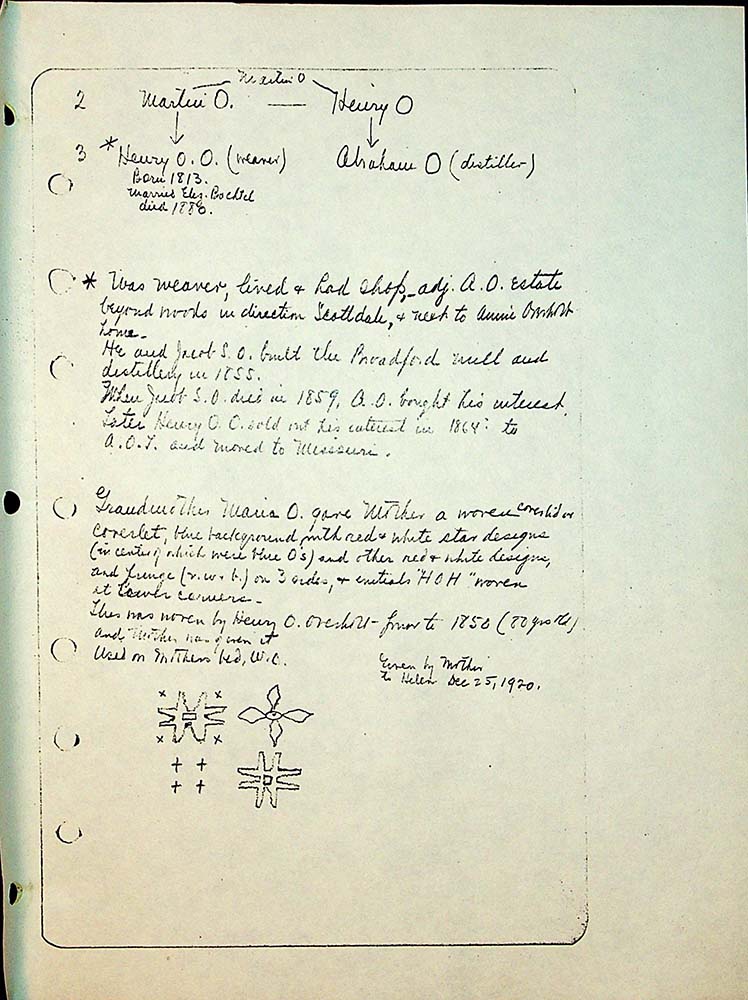 Martin O
2 Martin O. — Henry O
3 * Henry O. O. (weaver) Abraham O (distiller)
Born 1813.
Married Eliz. Bechtel
died 1880.
* Was weaver, lived & had shop, adj. A.O. Estate
beyond woods in direction Scottdale, & next to Annie Overholt
home.
He and Jacob S. O. built the Broadford mill and
distillery in 1855.
When Jacob S. O. died in 1859, A.O. bought his interest.
Later Henry O. O. sold out his interest in 1864 to
A.O.T. and moved to Missouri.
Grandmother Maria O. gave Mother a woven coverlid or
coverlet, blue background with red & white star designs
(in center of which were blue O's) and other red & white designs,
and fringe (r. w & b.) on 3 sides, & initials "HOH" woven
at lower corners.
This was woven by Henry O. Overholt prior to 1850 (80 yrs old)
and Mother was given it
Used on Mothers bed, W.C.
Given by Mother
to Helen Dec 25, 1920.